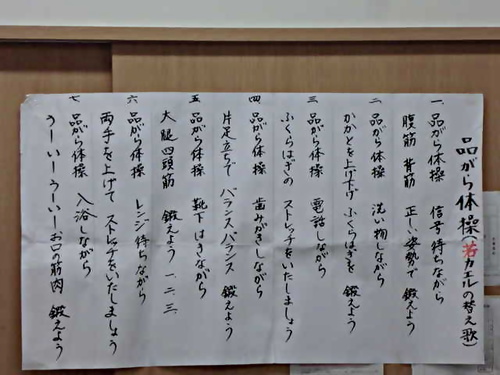 品がら体操(若カエルの替え歌)
一 品がら体操 信号待ちながら
腹筋 背筋 正しい姿勢で 鍛えよう
二 品がら体操 洗い物しながら
かかとを上げ下げ ふくらはぎを 鍛えよう
三 品がら体操 電話しながら
ふくらはぎの ストレッチをいたしましょう
四 品がら体操 歯みがきしながら
片足立ちで バランスバランス 鍛えよう
五 品がら体操 靴下はきながら
大腿四頭筋 鍛えよう 一 二 三
六 品がら体操 レンジ待ちながら
両手を上げて ストレッチをいたしましょう
七 品がら体操 入浴しながら
うーいーうーいーお口の筋肉 鍛えよう